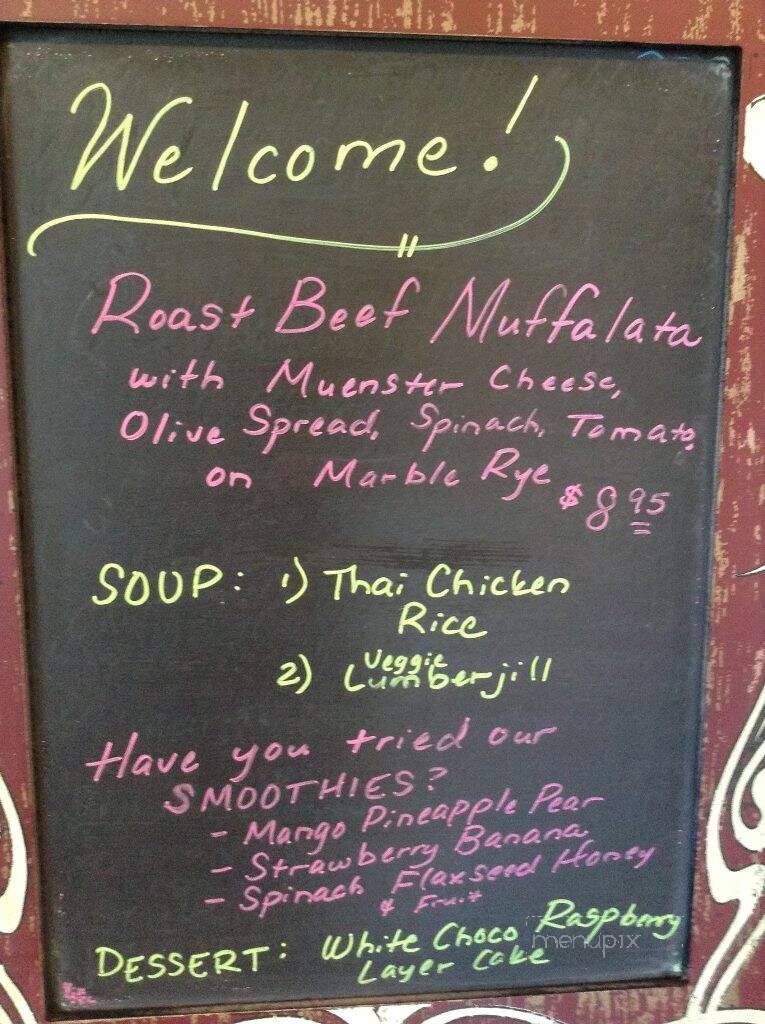 Welcome!
Roast Beef Muffalata
with Muenster Cheese,
Olive Spread, Spinach, Tomato,
on Marble Rye
$8 95
SOUP: 1) Thai Chicken
Rice
2) Veggie Lumberjill
Have you tried our
SMOOTHIES?
- Mango Pineapple Pear
- Strawberry Banana
- Spinach Flaxseed Honey
& Fruit
DESSERT: White Choco Raspberry
Layer Cake
menupix